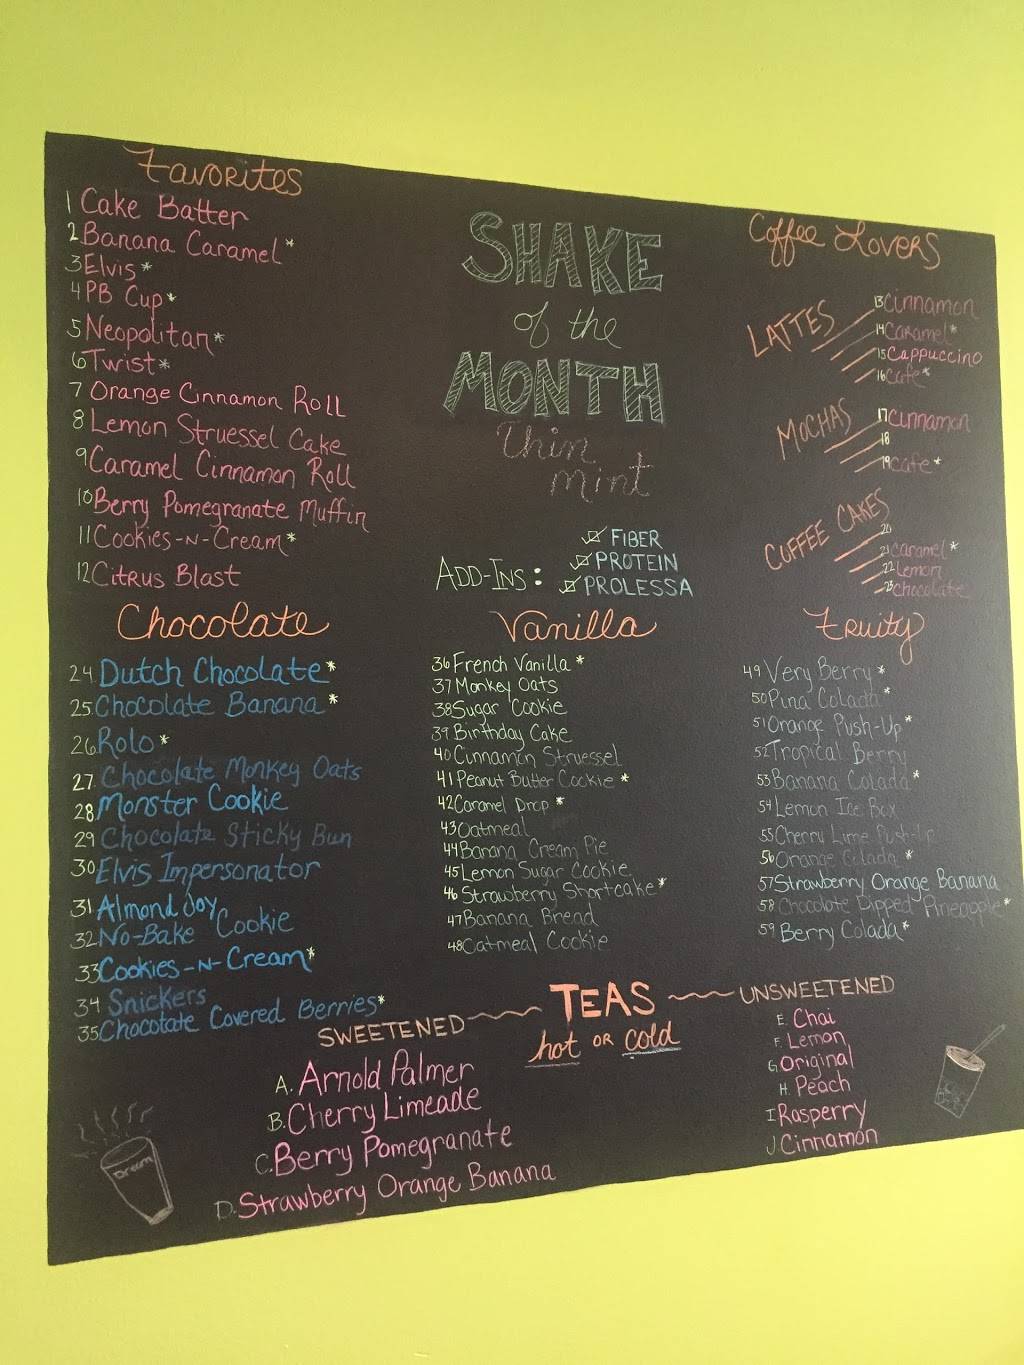 Favorites
1 Cake Batter
2 Banana Caramel*
3 Elvis*
4 PB Cup*
5 Neopolitan*
6 Twist*
7 Orange Cinnamon Roll
8 Lemon Struessel Cake
9 Caramel Cinnamon Roll
10 Berry Pomegranate Muffin
11 Cookies-n-Cream*
12 Citrus Blast
SHAKE
of the
MONTH
Thin
Mint
ADD-INS:
FIBER
PROTEIN
PROLESSA
Coffee Lovers
LATTES
13 Cinnamon
14 Caramel*
15 Cappuccino
16 Cafe*
MOCHAS
17 Cinnamon
18
19 Cafe*
COFFEE CAKES
20
21 Caramel*
22 Lemon
23 Chocolate
Chocolate
24 Dutch Chocolate*
25 Chocolate Banana*
26 Rolo*
27 Chocolate Monkey Oats
28 Monster Cookie
29 Chocolate Sticky Bun
30 Elvis Impersonator
31 Almond Joy
32 No-Bake Cookie
33 Cookies-n-Cream*
34 Snickers
35 Chocotate Covered Berries*
Vanilla
36 French Vanilla*
37 Monkey Oats
38 Sugar Cookie
39 Birthday Cake
40 Cinnamon Struessel
41 Peanut Butter Cookie*
42 Caramel Drop*
43 Oatmeal
44 Banana Cream Pie
45 Lemon Sugar Cookie
46 Strawberry Shortcake*
47 Banana Bread
48 Oatmeal Cookie
Fruity
49 Very Berry*
50 Pina Colada*
51 Orange Push-Up*
52 Tropical Berry
53 Banana Colada*
54 Lemon Ice Box
55 Cherry Lime Push-Up
56 Orange Colada*
57 Strawberry Orange Banana
58 Chocolate Dipped Pineapple*
59 Berry Colada*
TEAS
hot or cold
SWEETENED
A. Arnold Palmer
B. Cherry Limeade
C. Berry Pomegranate
D. Strawberry Orange Banana
UNSWEETENED
E. Chai
F. Lemon
G. Original
H. Peach
I. Rasperry
J. Cinnamon
Dream